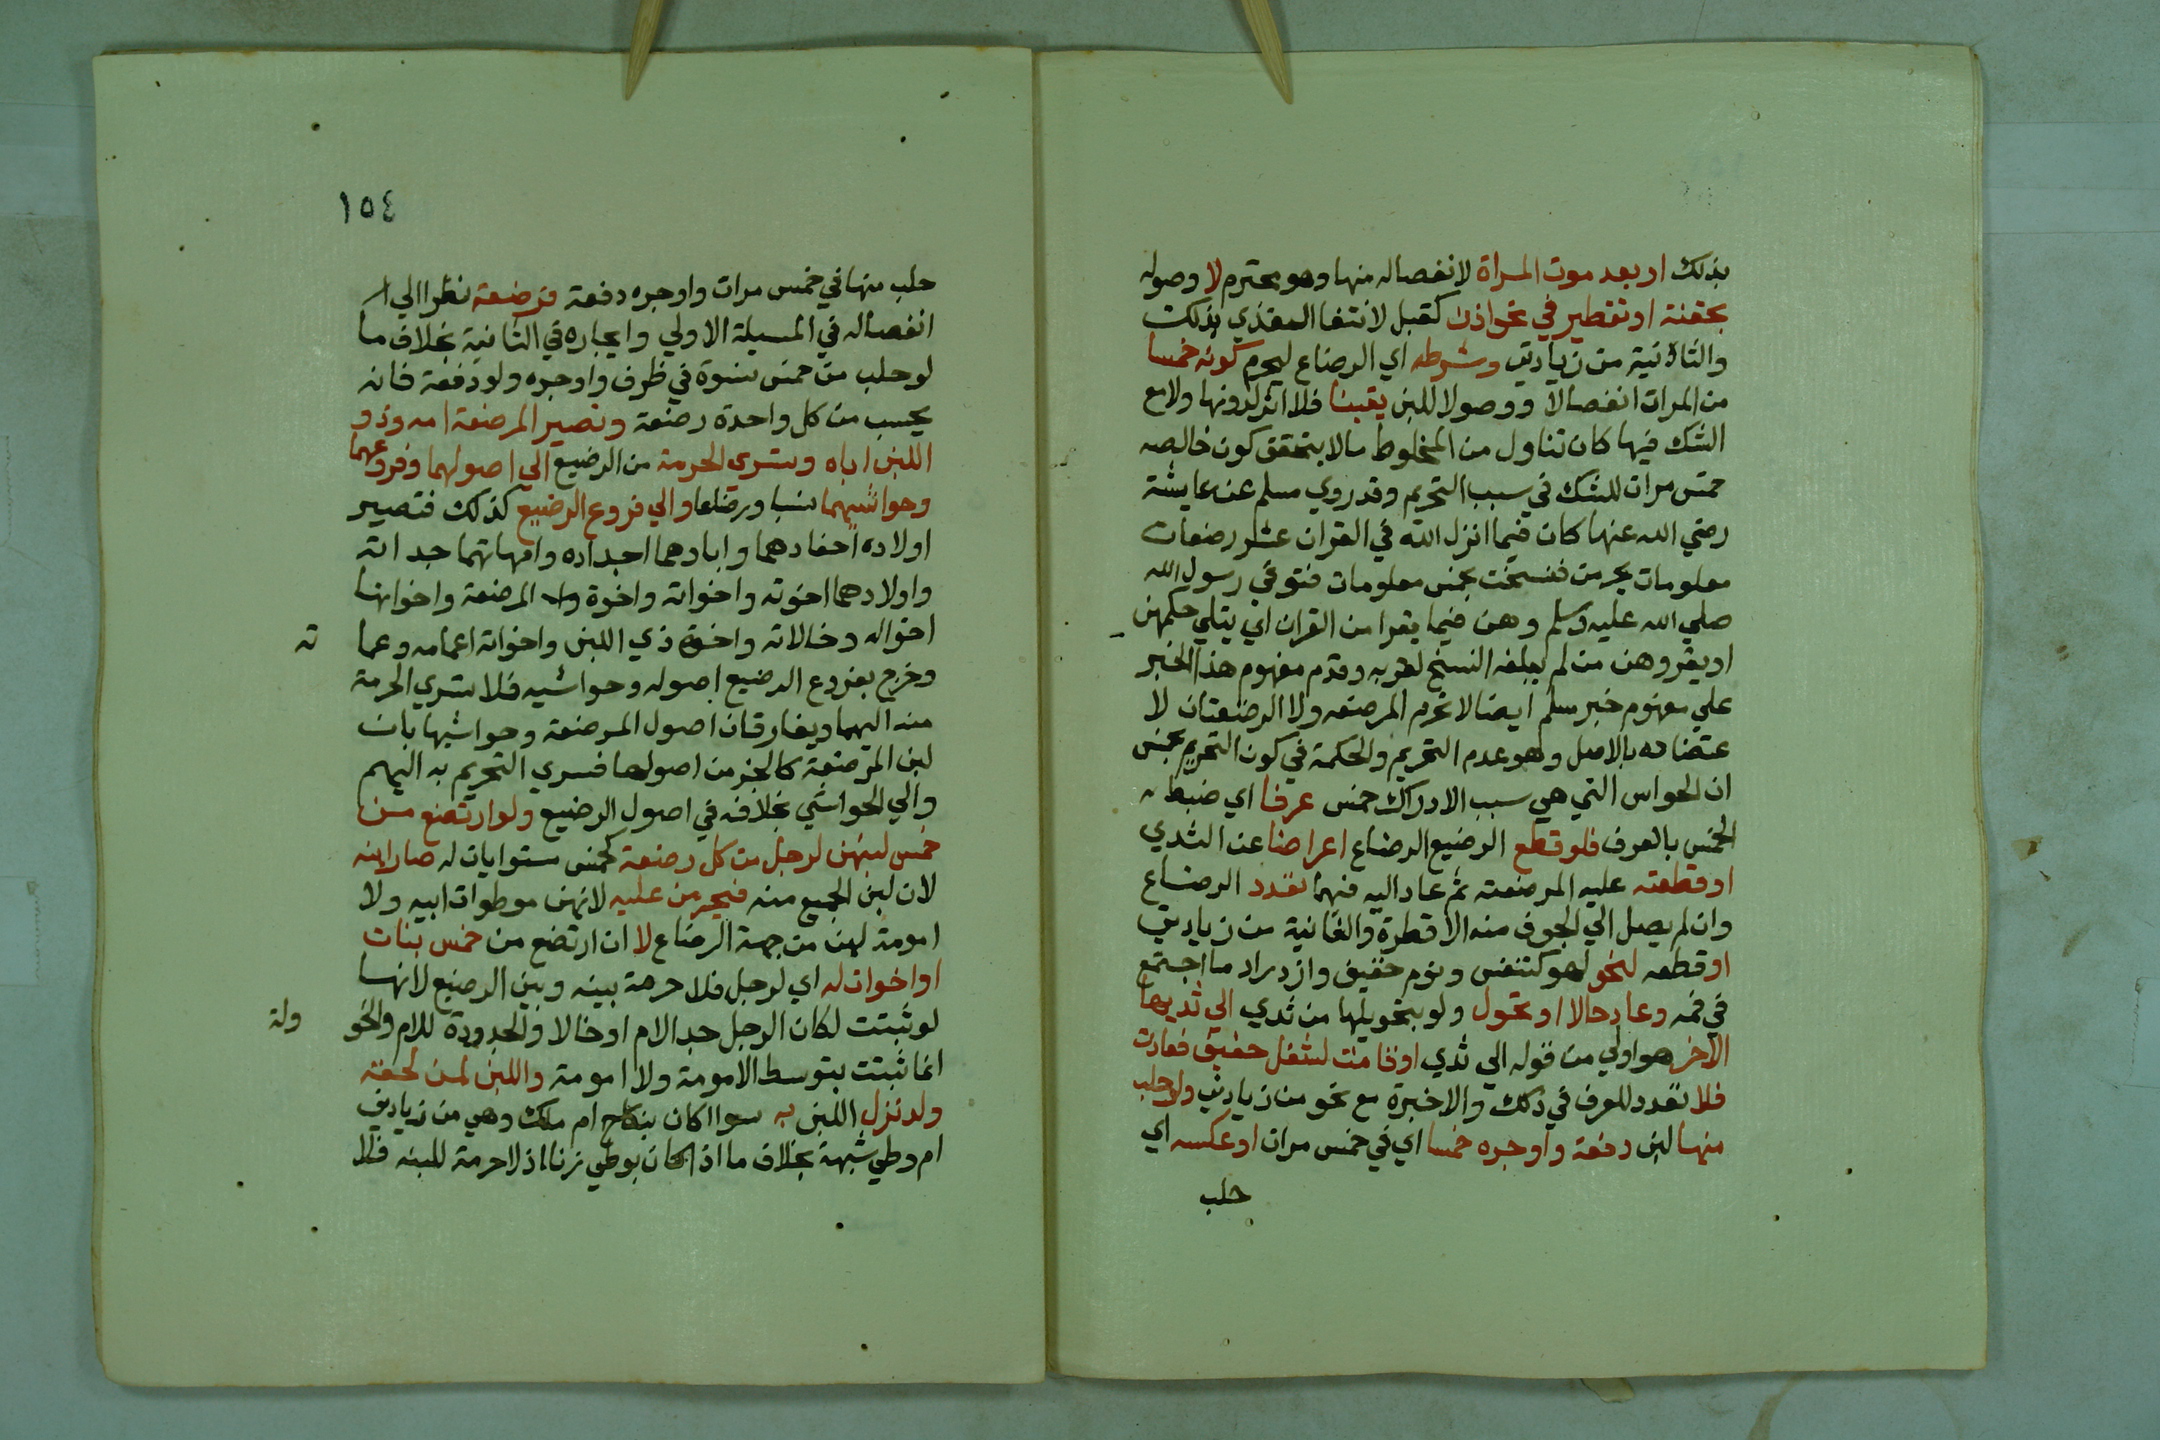 بذلك او بعد موت المراة لانفصاله منها وهو محترم لا وصوله
بحقنة او تقطير في نحو اذن كقبل لانتفا التغذي بذلك
والثانية من زيادتي وشرطه اي الرضاع ليحرم كونه خمسا
من المرات انفصالا ووصولا للبن يقينا فلا اثر لدونها ولا مع
الشك فيها كان تناول من المخلوط مالا يتحقق كون خالصه
خمس مرات للشك في سبب التحريم وقد روي مسلم عن عايشة
رضي الله عنها كان فيما انزل الله في القران عشر رضعات
معلومات يحرمن فنسخت بخمس معلومات فتوفي رسول الله
صلي الله عليه وسلم وهن فيما يقرا من القران اي يتلي حكمهن
او يقروهن من لم يبلغه النسخ لقربه وقدم مفهوم هذا الخبر
علي مفهوم خبر مسلم ايضا لا تحرم الرضعة ولا الرضعتان لا
عتضاده بالاصل وهو عدم التحريم والحكمة في كون التحريم بخمس
ان الحواس التي هي سبب الادراك خمس عرفا اي ضبط
الخمس بالعرف فلو قطع الرضيع الرضاع اعراضا عن الثدي
او قطعته عليه المرضعة ثم عاد اليه فيهما تعدد الرضاع
وان لم يصل الي الجوف منه الا قطرة والثانية من زيادتي
او قطعه لنحو لهو كتنفس ونوم خفيف وازدراد ما اجتمع
في فمه وعاد حالا او تحول ولو بتحويلها من ثدي الي ثديها
الاخر هو اولي من قوله الي ثدي او قامت لشغل خفيف فعادت
فلا تعدد للعرف في ذلك والاخيرة مع نحو من زيادتي ولو حلب
منها لبن دفعة واوجره خمسا اي في خمس مرات او عكسه اي
حلب
١٥٤
حلب منها في خمس مرات واوجره دفعة فرضعة نظرا الي
انفصاله في المسيلة الاولي وايجاره في الثانية بخلاف ما
لو حلب من خمس نسوة في ظرف واوجره ولو دفعة فانه
يحسب من كل واحدة رضعة وتصير المرضعة امه وذو
اللبن اباه وتسري الحرمة من الرضيع الي اصولهما وفروعهما
وحواشيهما نسبا ورضاعا والي فروع الرضيع كذلك فتصير
اولاده احفادهما واباوهما اجداده وامهاتهما جداته
واولادهما اخوته واخواته واخوة المرضعة واخواتها
اخواله وخالاته واخوة ذي اللبن واخواته اعمامه وعما
ته
وخرج بفروع الرضيع اصوله وحواشيه فلا تسري الحرمة
منه اليهما ويفارقان اصول المرضعة وحواشيها بان
لبن المرضعة كالجزء من اصولها فسري التحريم به اليهم
والي الحواشي بخلافه في اصول الرضيع ولو ارتضع من
خمس لبنهن لرجل من كل رضعة كخمس مستولدات له صار ابنه
لان لبن الجميع منه فيحرمن عليه لانهن موطوات ابيه ولا
امومة لهن من جهة الرضاع لا ان ارتضع من خمس بنات
او اخوات له اي لرجل فلا حرمة بينه وبين الرضيع لانها
لو ثبتت لكان الرجل جد الام او خالا والجدودة للام والخو
ولة
انما تثبت بتوسط الامومة ولا امومة واللبن لمن لحقه
ولد نزل اللبن به سوا اكان بنكاح ام ملك وهي من زيادتي
ام وطي شبهة بخلاف ما اذا كان بوطي زنا اذ لا حرمة للبنه فلا